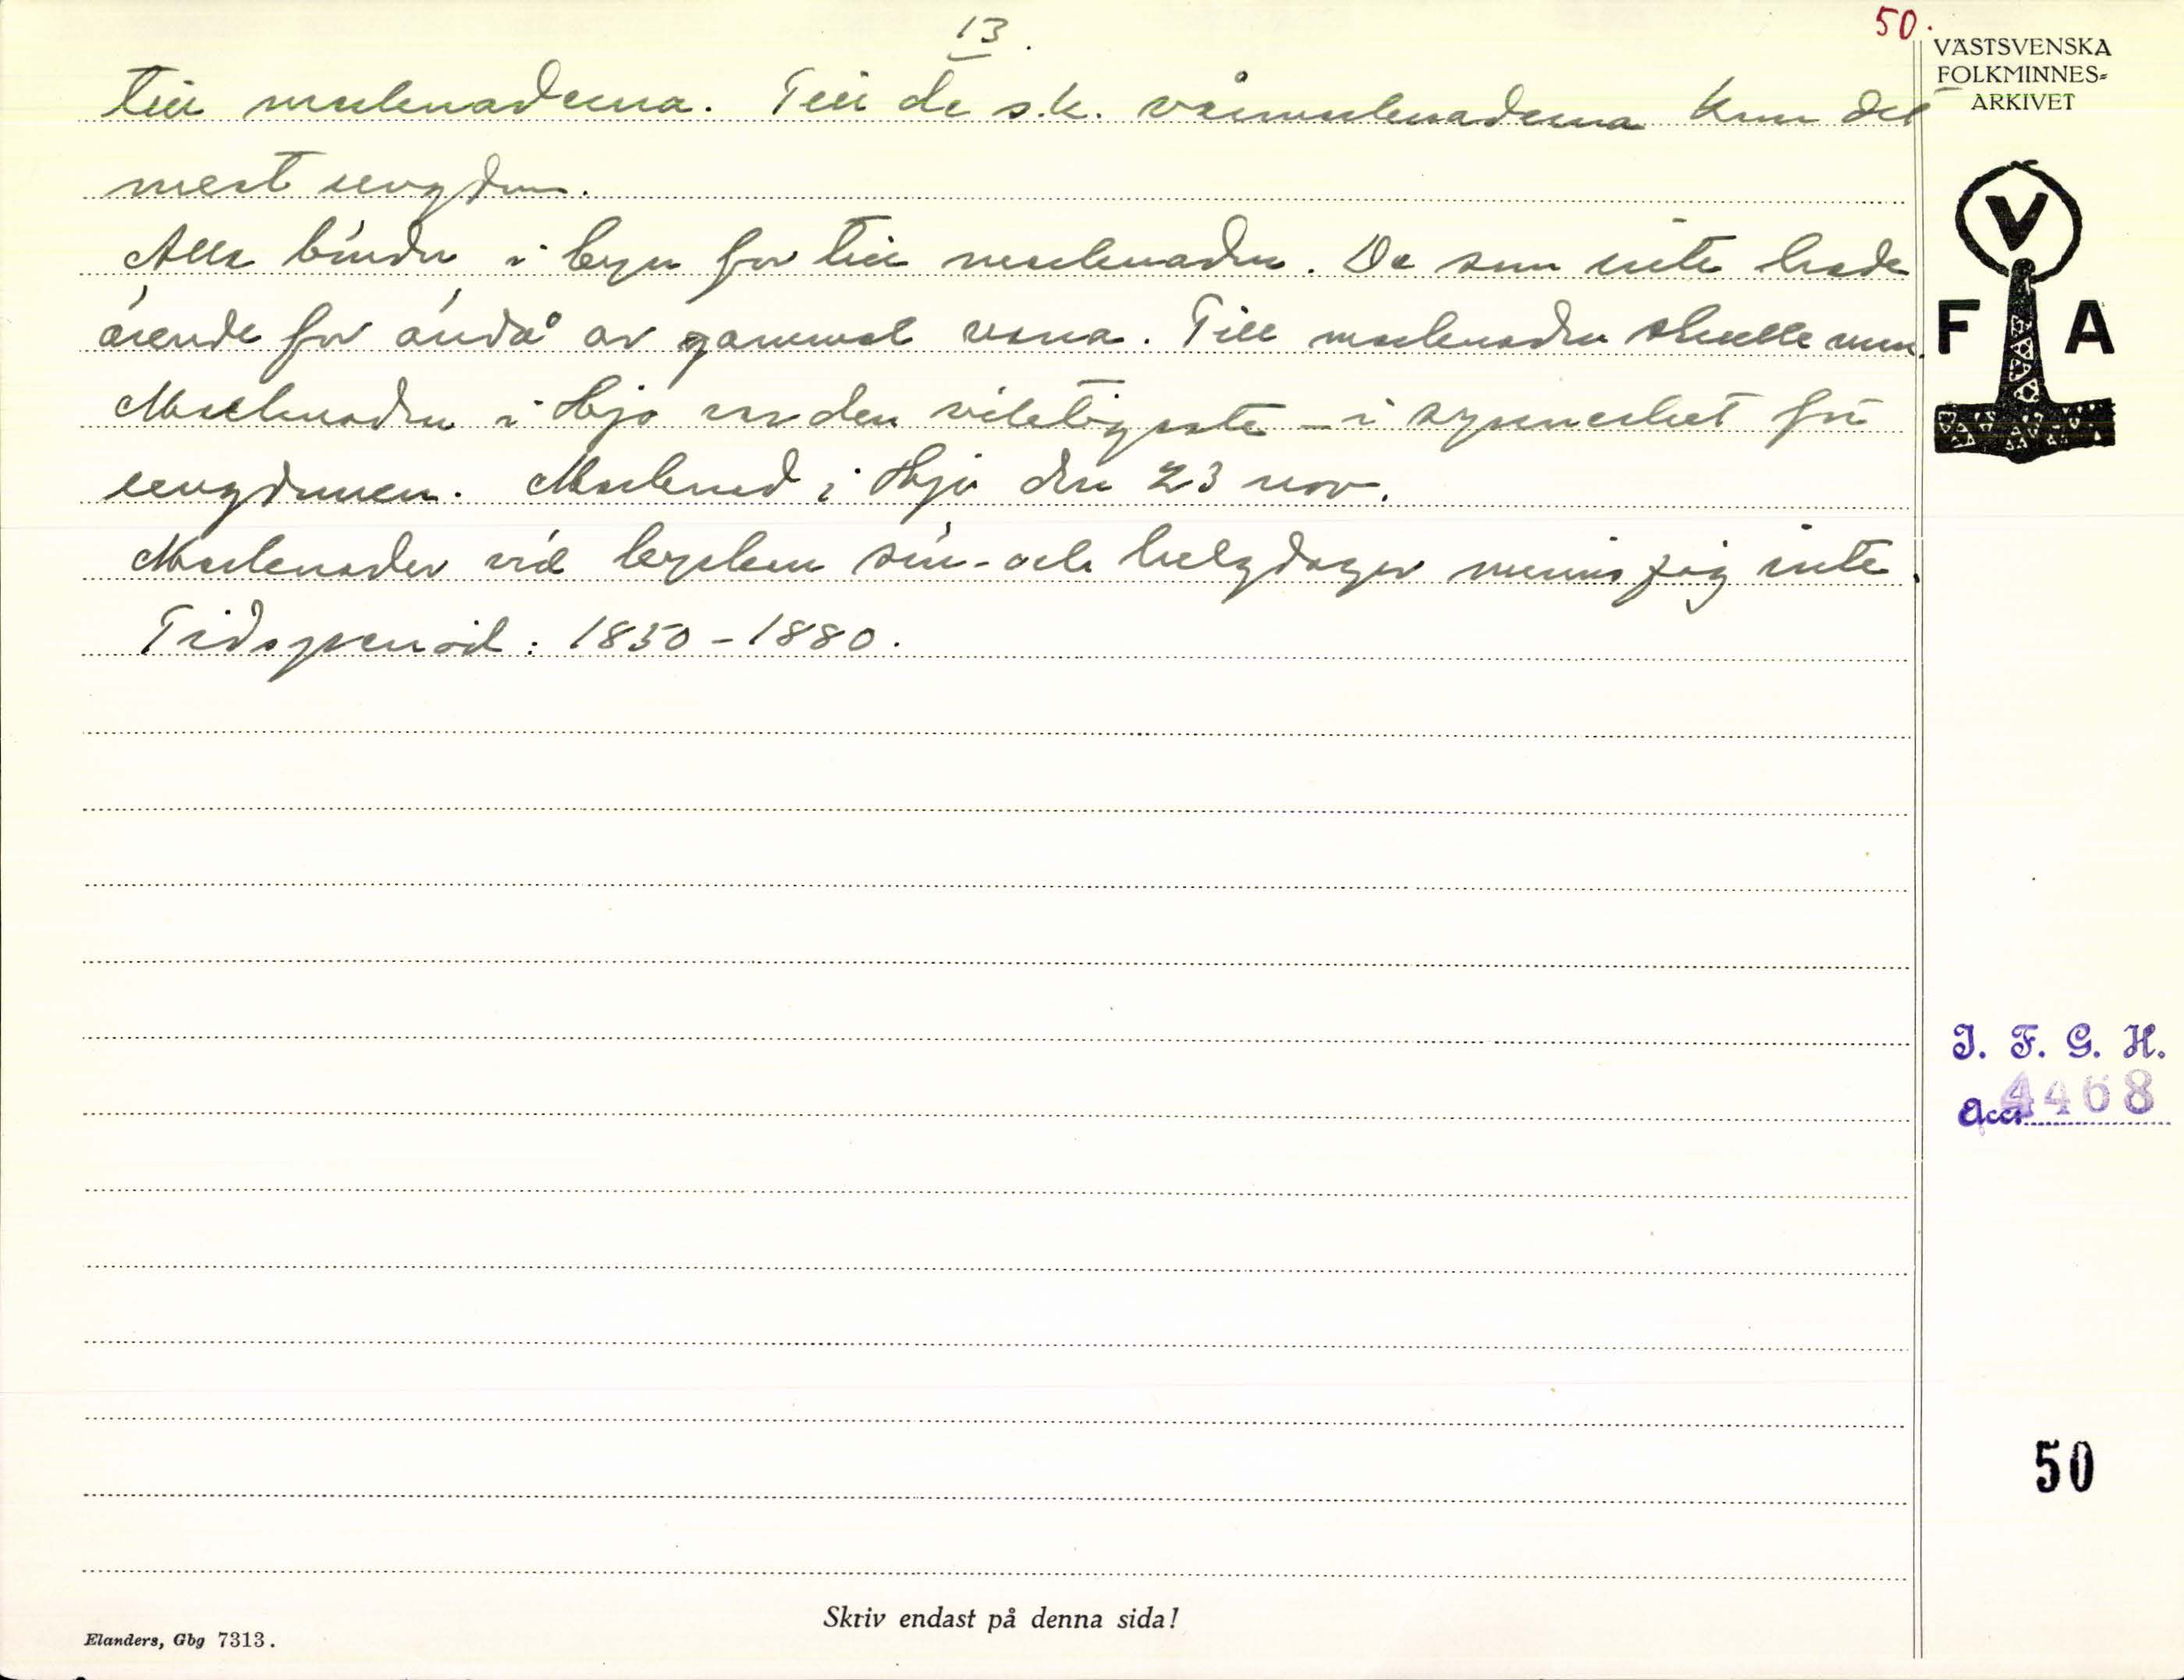 13.
50.
till marknaderna. Till de s.k. vårmarknaderna kom det
mest ungdom.
Alla bönder i byn for till marknaden. De som inte hade
ärende for ändå av gammal vana. Till marknaden skulle man.
Marknaden i Hjo var den viktigaste – i synnerhet för
ungdomen. Marknad i Hjo den 23 nov.
Marknader vid kyrkan sön- och helgdagar minns jag inte.
Tidsperiod: 1850-1880.
VÄSTSVENSKA
FOLKMINNES-
ARKIVET
V
F A
I. F. G. H.
Acc. 4468
50
Skriv endast på denna sida!
Elanders, Gbg 7313.